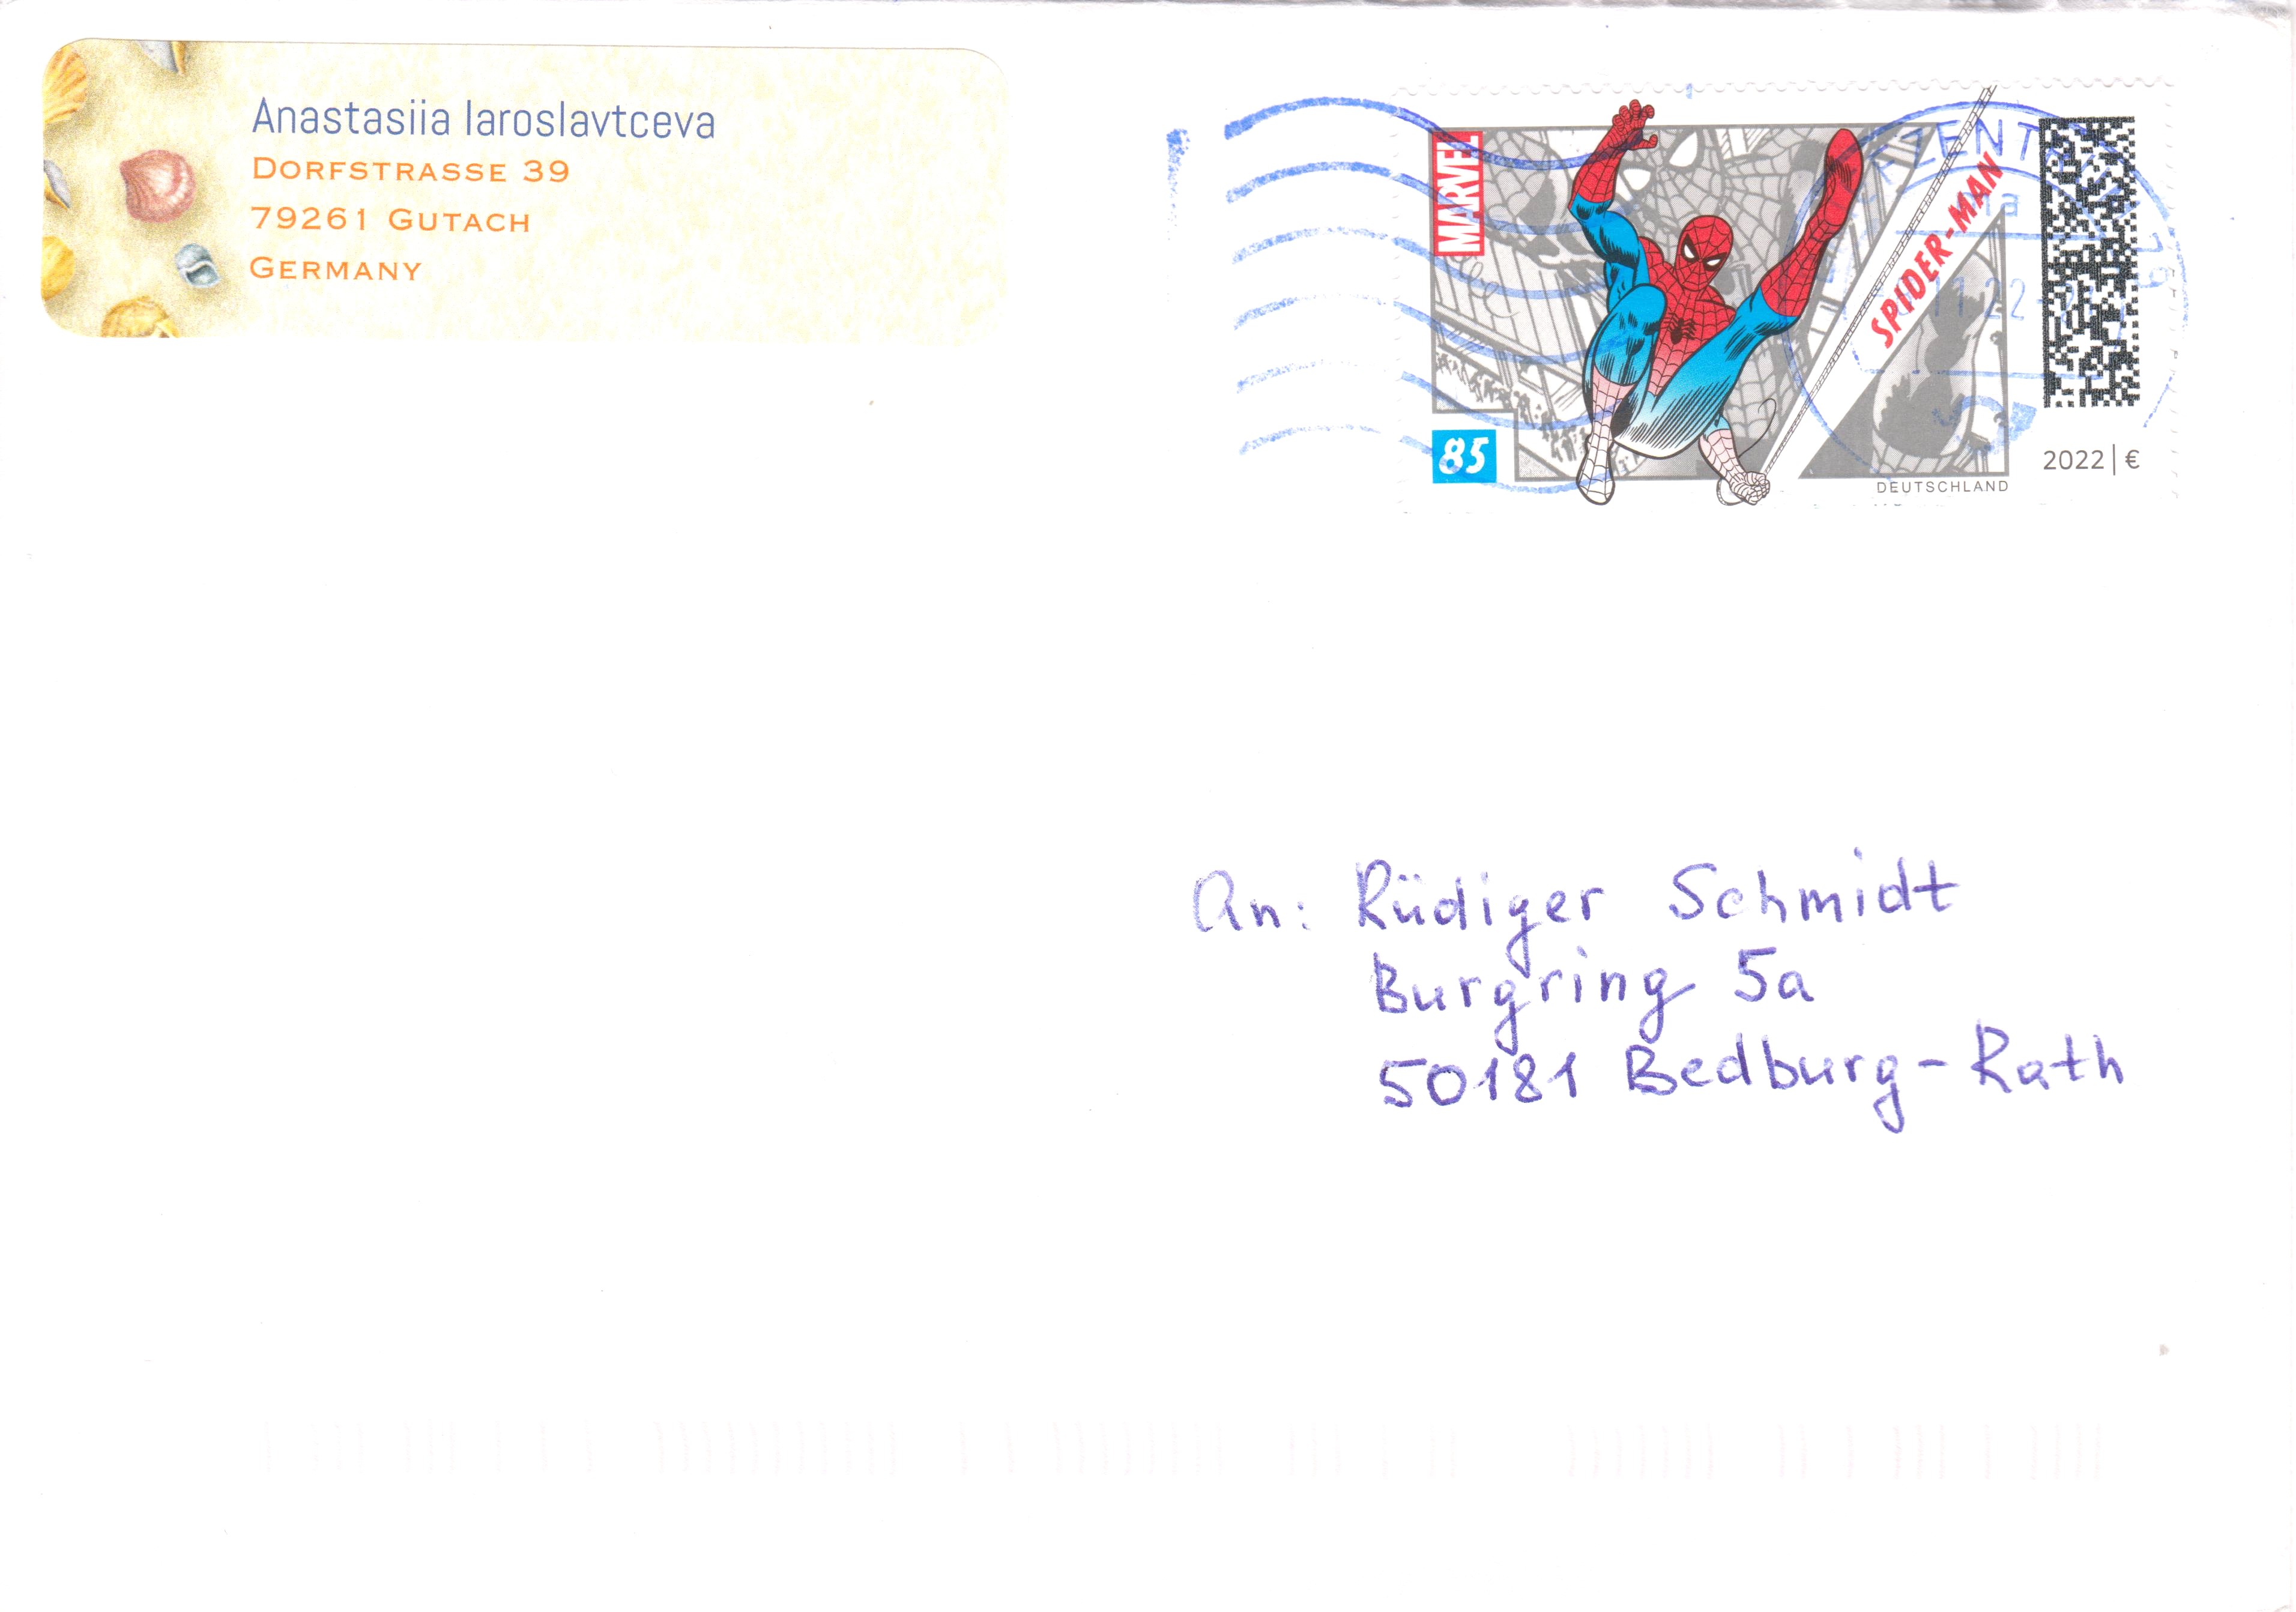 Anastasiia Iaroslavtceva
DORFSTRASSE 39
79261 GUTACH
GERMANY
MARVEL
SPIDER-MAN
85
2022 | €
DEUTSCHLAND
An: Rüdiger Schmidt
Burgring 5a
50181 Bedburg-Rath